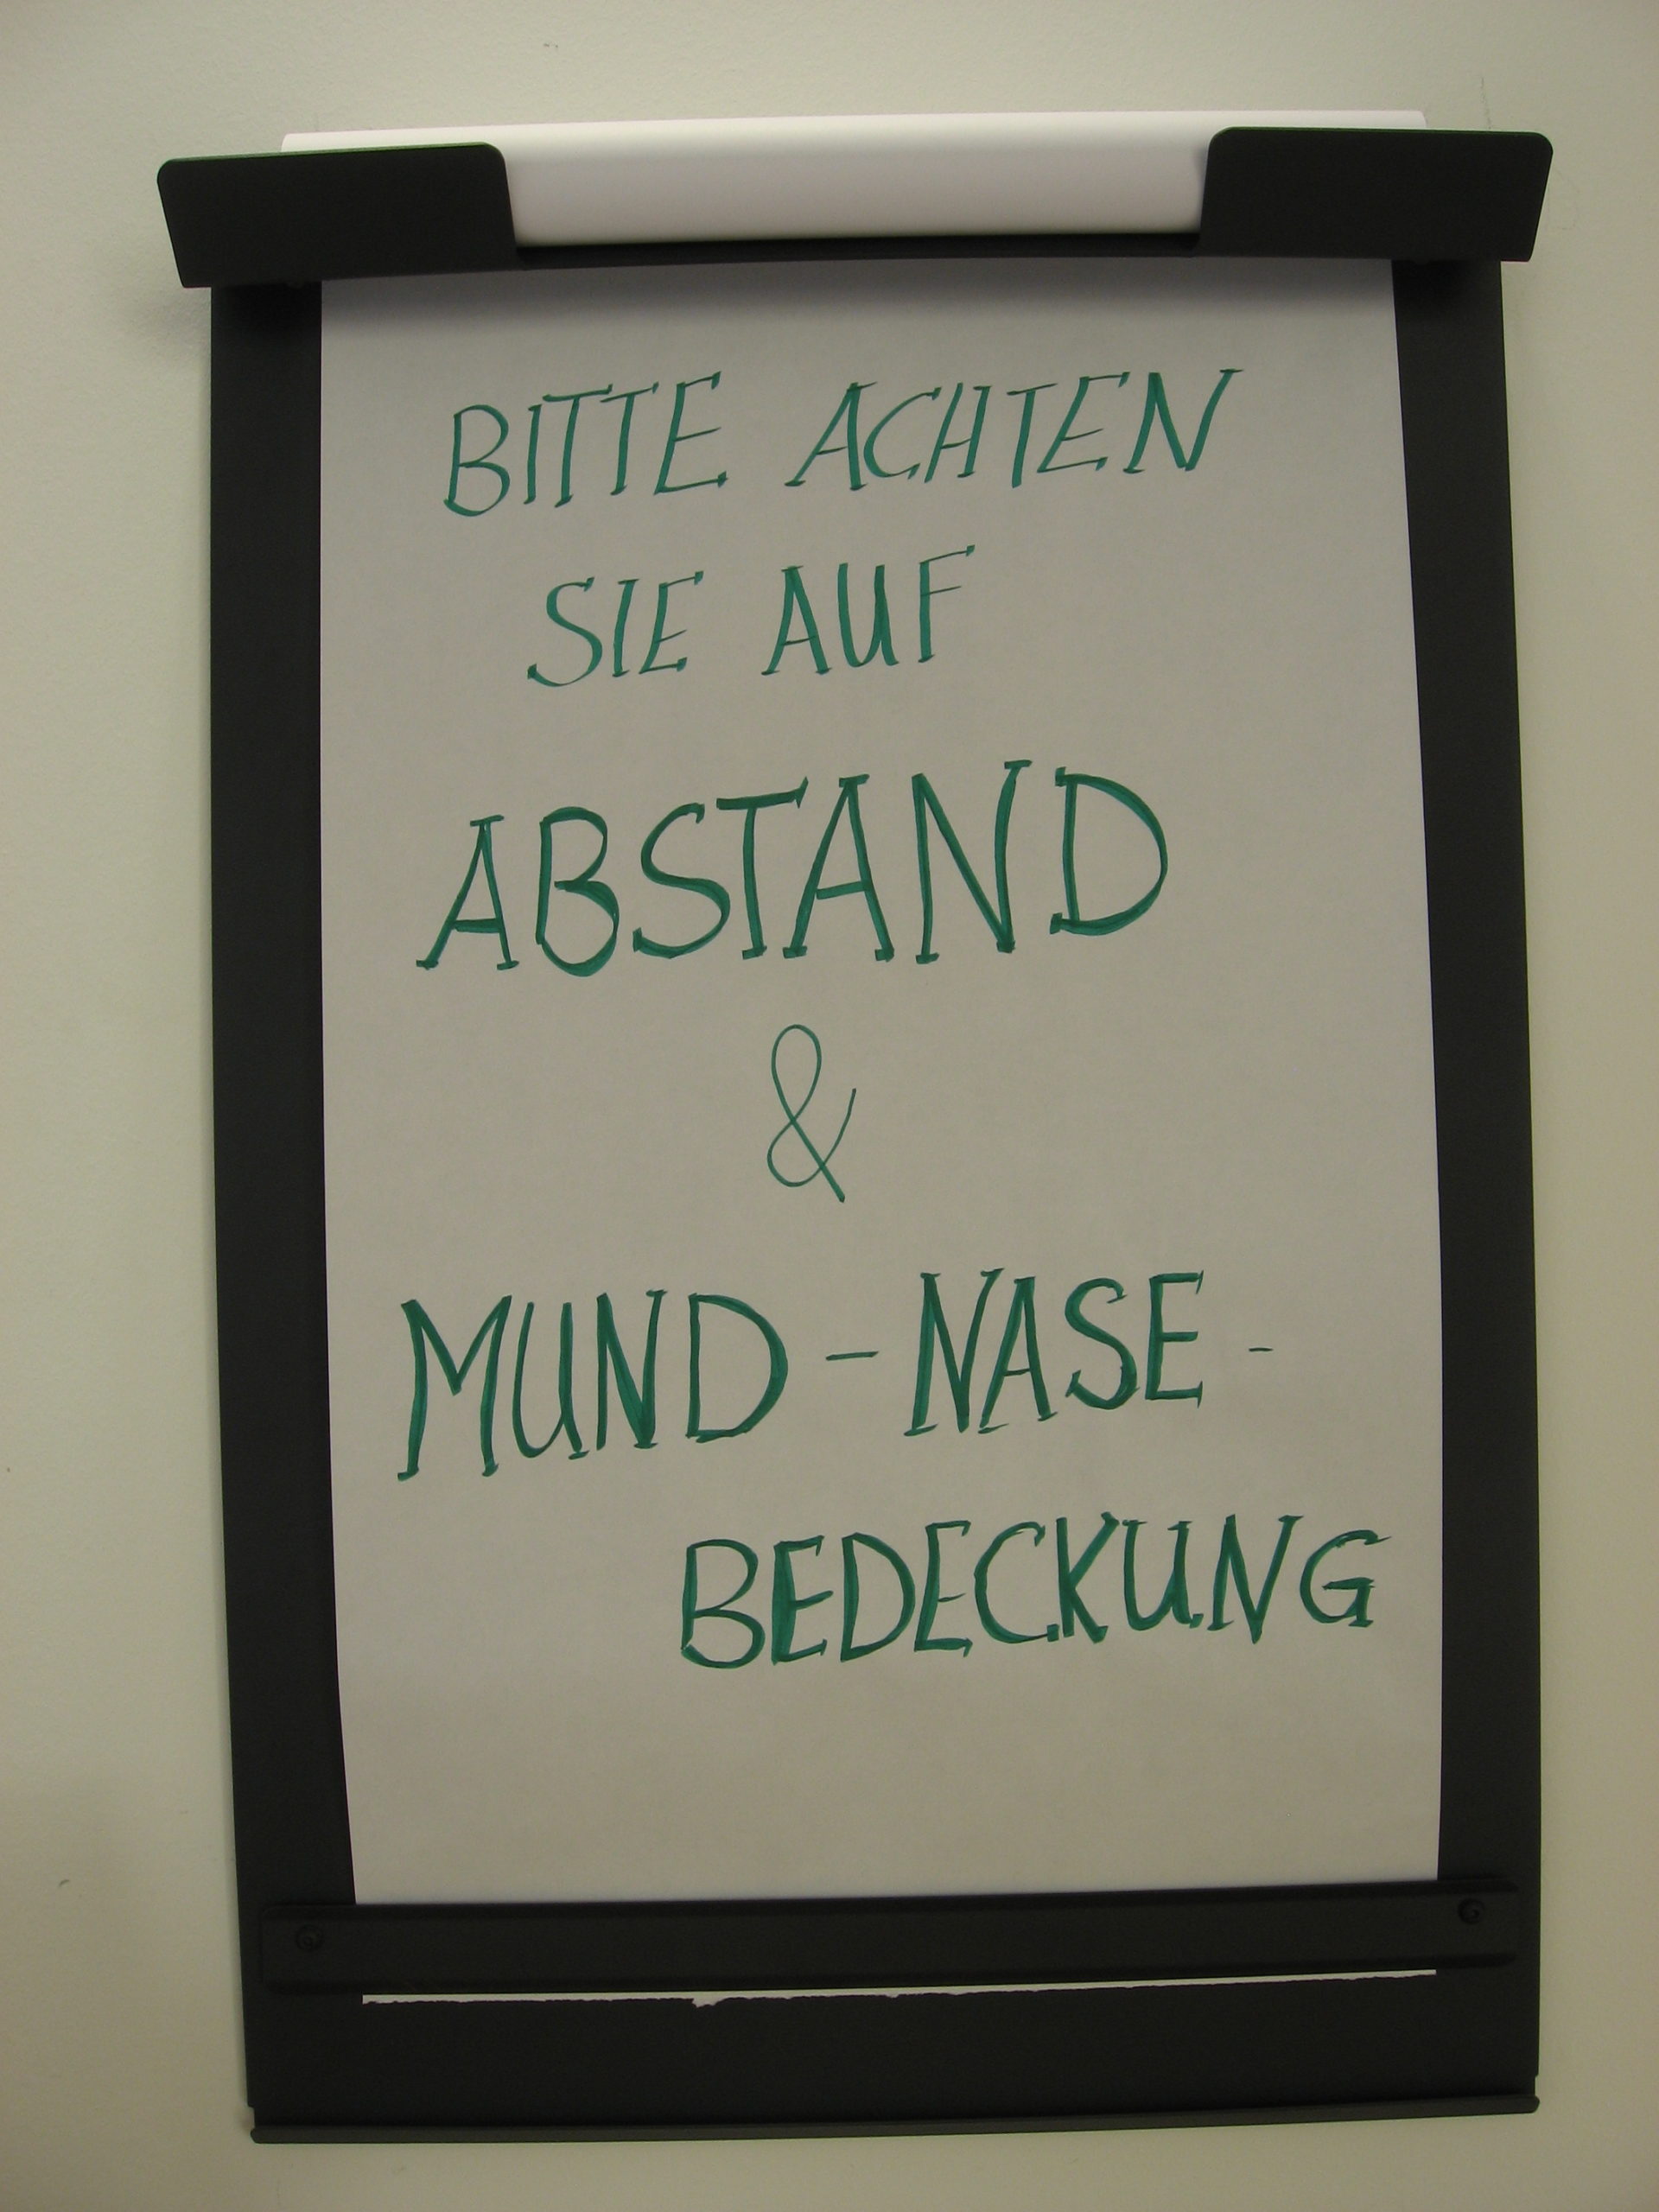 BITTE ACHTEN
SIE AUF
ABSTAND
&
MUND - NASE -
BEDECKUNG